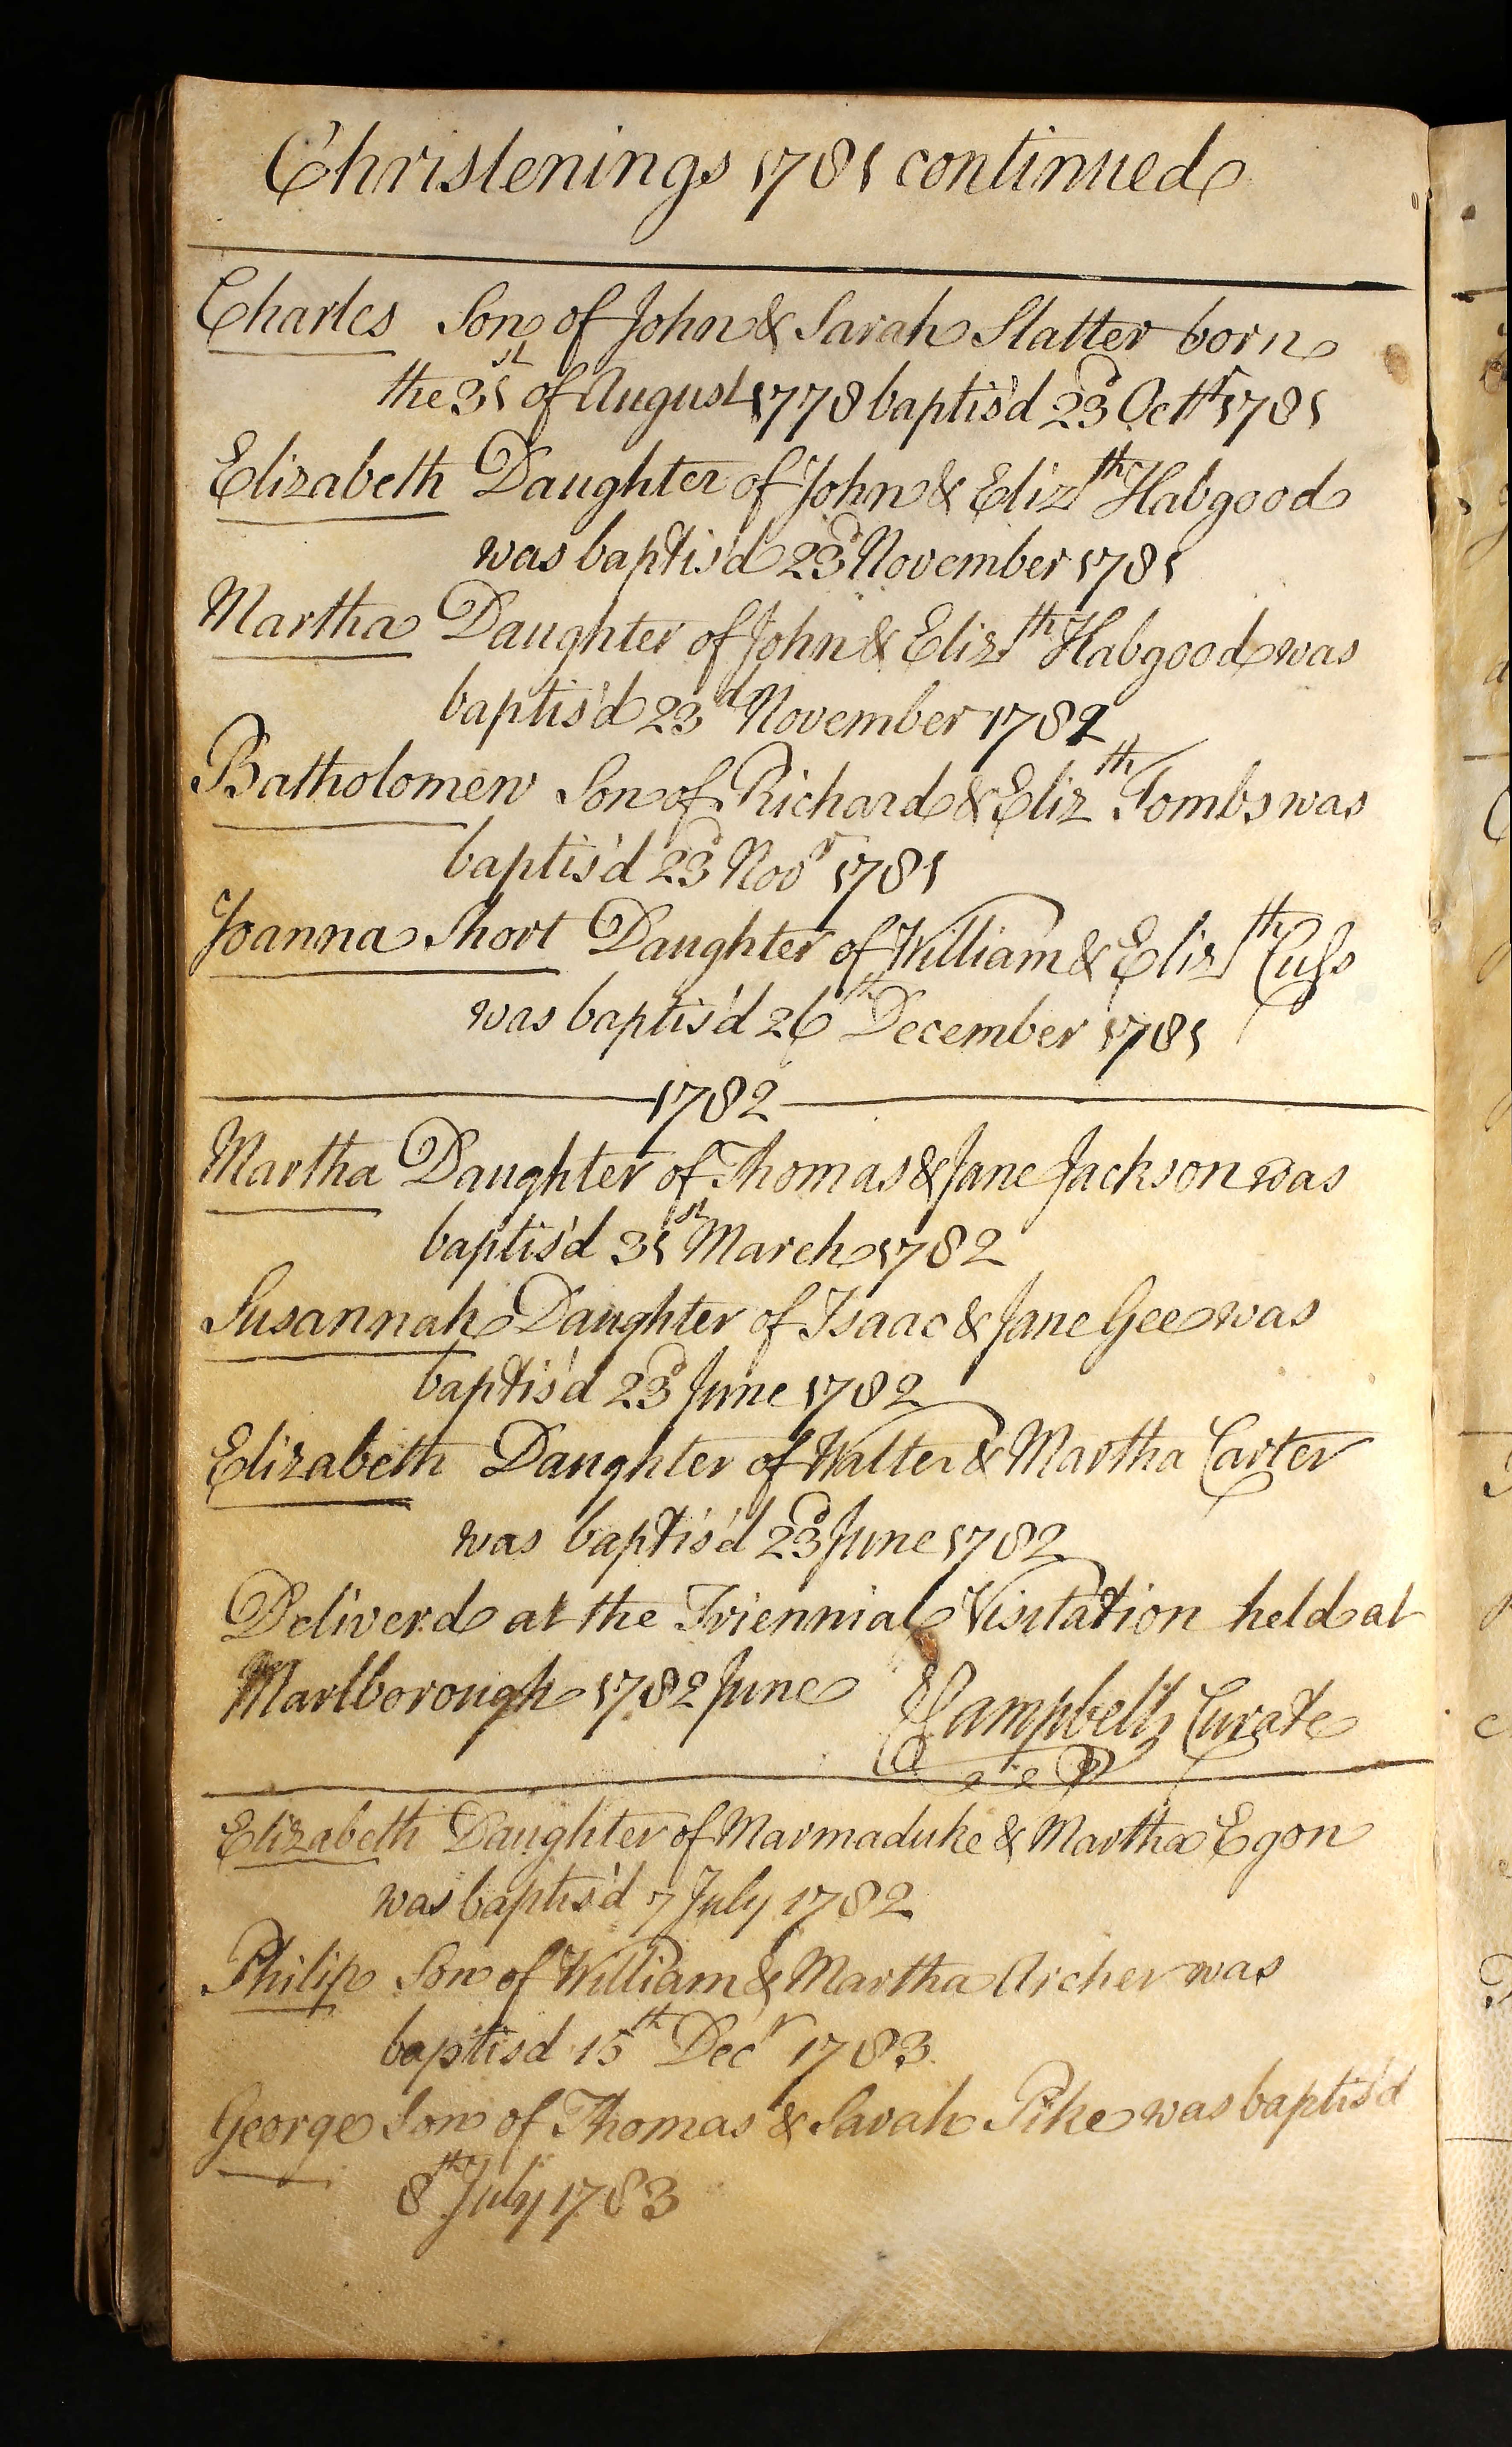 Christenings 1781 continued
Charles Son of John & Sarah Slatter born
the 31st of August 1778 baptis'd 23d Octr 1781
Elizabeth Daughter of John & Elizth Habgood
was baptis'd 23d November 1781
Martha Daughter of John & Elizth Habgood was
baptis'd 23d November 1782
Batholomew Son of Richard & Elizth Tombs was
baptis'd 23d Novr 1781
Joanna Short Daughter of William & Elizth Cuss
was baptis'd 26th December 1781
1782
Martha Daughter of Thomas & Jane Jackson was
baptis'd 31st March 1782
Susannah Daughter of Isaac & Jane Gee was
baptis'd 23d June 1782
Elizabeth Daughter of Walter & Martha Carter
was baptis'd 23d June 1782
Deliverd at the Triennial Visitation held at
Marlborough 1782 June Campbell Curate
Elizabeth Daughter of Marmaduke & Martha Egon
was baptis'd 7 July 1782
Philip Son of William & Martha Archer was
baptisd 15th Decr 1783
George Son of Thomas & Sarah Pike was baptis'd
8th July 1783